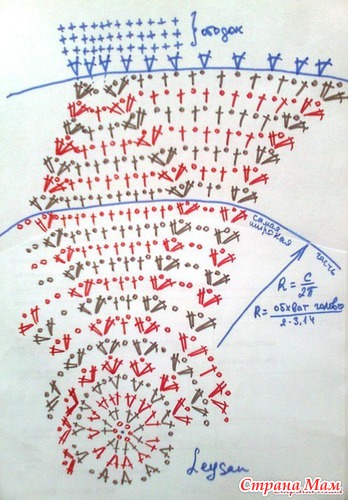 ободок
самая
широкая
часть
R = C/2π
R = обхват головы/2·3,14
Leysan
Страна Мам